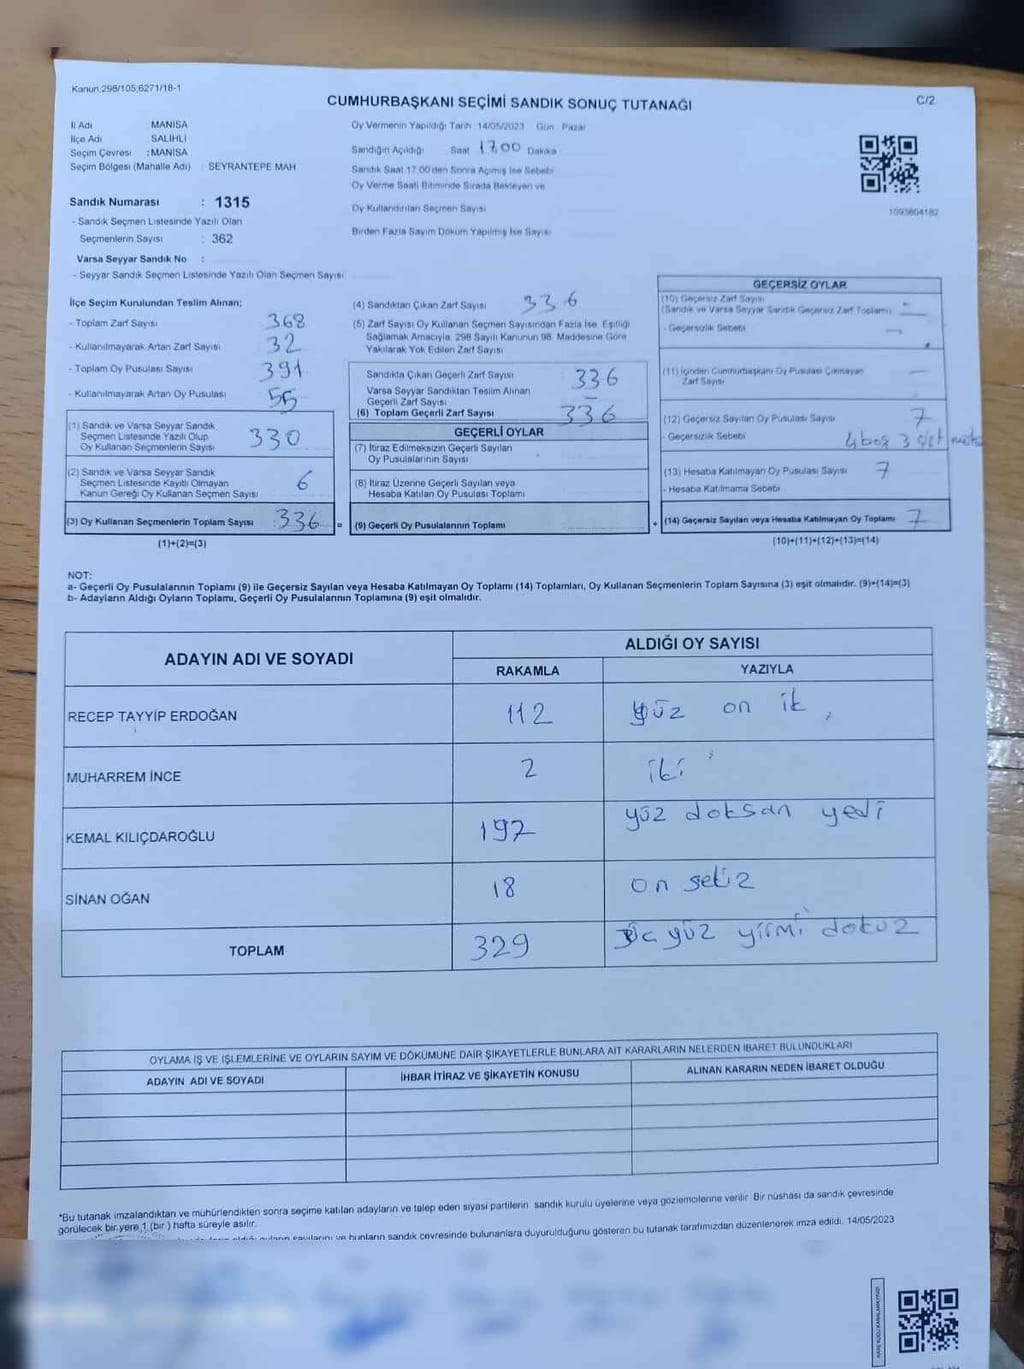 Kanun,298/105,6271/18-1
C/2
CUMHURBAŞKANI SEÇİMİ SANDIK SONUÇ TUTANAĞI
İl Adı MANİSA
İlçe Adı SALİHLİ
Seçim Çevresi : MANİSA
Seçim Bölgesi (Mahalle Adı) : SEYRANTEPE MAH
Sandık Numarası : 1315
- Sandık Seçmen Listesinde Yazılı Olan
Seçmenlerin Sayısı : 362
Varsa Seyyar Sandık No :
- Seyyar Sandık Seçmen Listesinde Yazılı Olan Seçmen Sayısı:
Oy Vermenin Yapıldığı Tarih 14/05/2023 Gün Pazar
Sandığın Açıldığı Saat 17,00 Dakika
Sandık Saat 17:00'den Sonra Açımış İse Sebebi
Oy Verme Saati Bitiminde Sırada Bekleyen ve
Oy Kullandırılan Seçmen Sayısı
Birden Fazla Sayım Döküm Yapılmış İse Sayısı
1093804182
İlçe Seçim Kurulundan Teslim Alınan;
- Toplam Zarf Sayısı 368
- Kullanılmayarak Artan Zarf Sayısı 32
- Toplam Oy Pusulası Sayısı 391
- Kullanılmayarak Artan Oy Pusulası 55
(1) Sandık ve Varsa Seyyar Sandık
Seçmen Listesinde Yazılı Olup
Oy Kullanan Seçmenlerin Sayısı 330
(2) Sandık ve Varsa Seyyar Sandık
Seçmen Listesinde Kayıtlı Olmayan
Kanun Gereği Oy Kullanan Seçmen Sayısı 6
(3) Oy Kullanan Seçmenlerin Toplam Sayısı 336 =
(1)+(2)=(3)
(4) Sandıktan Çıkan Zarf Sayısı 336
(5) Zarf Sayısı Oy Kullanan Seçmen Sayısından Fazla İse, Eşitliği
Sağlamak Amacıyla, 298 Sayılı Kanunun 98. Maddesine Göre
Yakılarak Yok Edilen Zarf Sayısı
Sandıkta Çıkan Geçerli Zarf Sayısı 336
Varsa Seyyar Sandıktan Teslim Alınan
Geçerli Zarf Sayısı -
(6) Toplam Geçerli Zarf Sayısı 336
GEÇERLİ OYLAR
(7) İtiraz Edilmeksizin Geçerli Sayılan
Oy Pusulalarının Sayısı
(8) İtiraz Üzerine Geçerli Sayılan veya
Hesaba Katılan Oy Pusulası Toplamı
(9) Geçerli Oy Pusulalarının Toplamı +
GEÇERSİZ OYLAR
(10) Geçersiz Zarf Sayısı
(Sandık ve Varsa Seyyar Sandık Geçersiz Zarf Toplamı) -
- Geçersizlik Sebebi -
(11) İçinden Cumhurbaşkanı Oy Pusulası Çıkmayan
Zarf Sayısı -
(12) Geçersiz Sayılan Oy Pusulası Sayısı 7
- Geçersizlik Sebebi 4 boş 3 çift
(13) Hesaba Katılmayan Oy Pusulası Sayısı 7
- Hesaba Katılmama Sebebi
(14) Geçersiz Sayılan veya Hesaba Katılmayan Oy Toplamı 7
(10)+(11)+(12)+(13)=(14)
NOT:
a- Geçerli Oy Pusulalarının Toplamı (9) ile Geçersiz Sayılan veya Hesaba Katılmayan Oy Toplamı (14) Toplamları, Oy Kullanan Seçmenlerin Toplam Sayısına (3) eşit olmalıdır. (9)+(14)=(3)
b- Adayların Aldığı Oyların Toplamı, Geçerli Oy Pusulalarının Toplamına (9) eşit olmalıdır.
ADAYIN ADI VE SOYADI
ALDIĞI OY SAYISI
RAKAMLA YAZIYLA
RECEP TAYYİP ERDOĞAN 112 yüz on ik
MUHARREM İNCE 2 iki
KEMAL KILIÇDAROĞLU 197 yüz doksan yedi
SİNAN OĞAN 18 on sekiz
TOPLAM 329 üç yüz yirmi dokuz
OYLAMA İŞ VE İŞLEMLERİNE VE OYLARIN SAYIM VE DÖKÜMÜNE DAİR ŞİKAYETLERLE BUNLARA AİT KARARLARIN NELERDEN İBARET BULUNDUKLARI
ADAYIN ADI VE SOYADI İHBAR İTİRAZ VE ŞİKAYETİN KONUSU ALINAN KARARIN NEDEN İBARET OLDUĞU
*Bu tutanak imzalandıktan ve mühürlendikten sonra seçime katılan adayların ve talep eden siyasi partilerin sandık kurulu üyelerine veya gözlemcilerine verilir. Bir nüshası da sandık çevresinde
görülecek bir yere 1 (bir ) hafta süreyle asılır.
bunların sandık çevresinde bulunanlara duyurulduğunu gösteren bu tutanak tarafımızdan düzenlenerek imza edildi. 14/05/2023